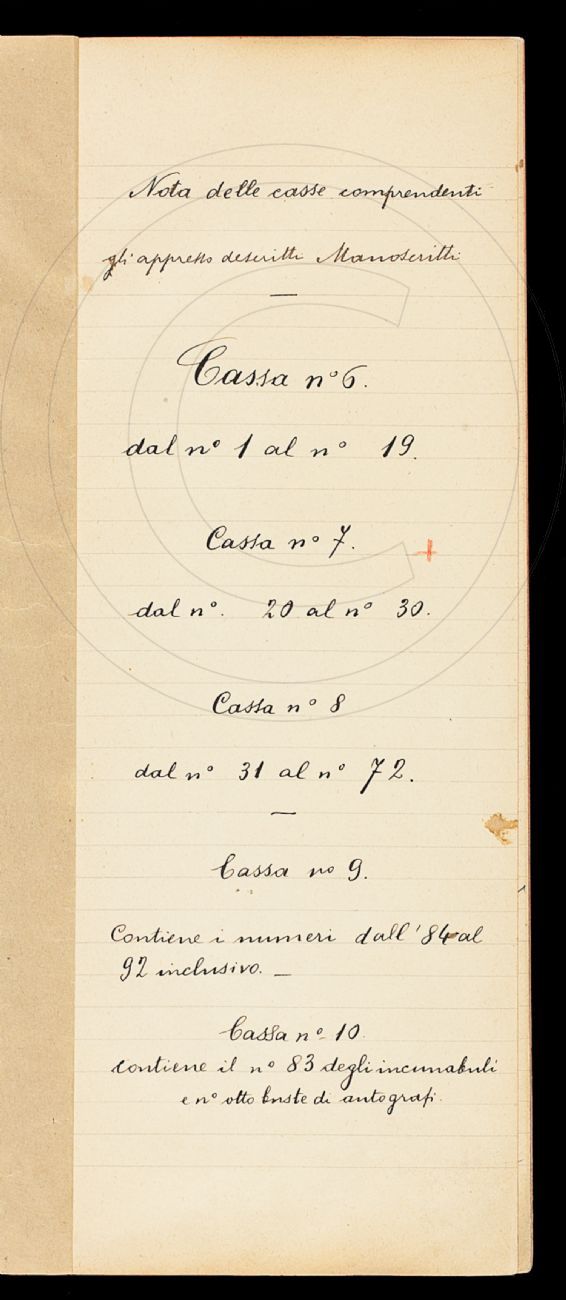 Nota delle casse comprendenti
gli appresso descritti Manoscritti
Cassa n° 6.
dal n° 1 al n° 19.
Cassa n° 7. +
dal n°. 20 al n° 30.
Cassa n° 8
dal n° 31 al n° 72.
Cassa no 9.
Contiene i numeri dall' 84 al
92 inclusivo. _
Cassa n° 10.
contiene il n° 83 degli incunabuli
e n° otto buste di autografi.